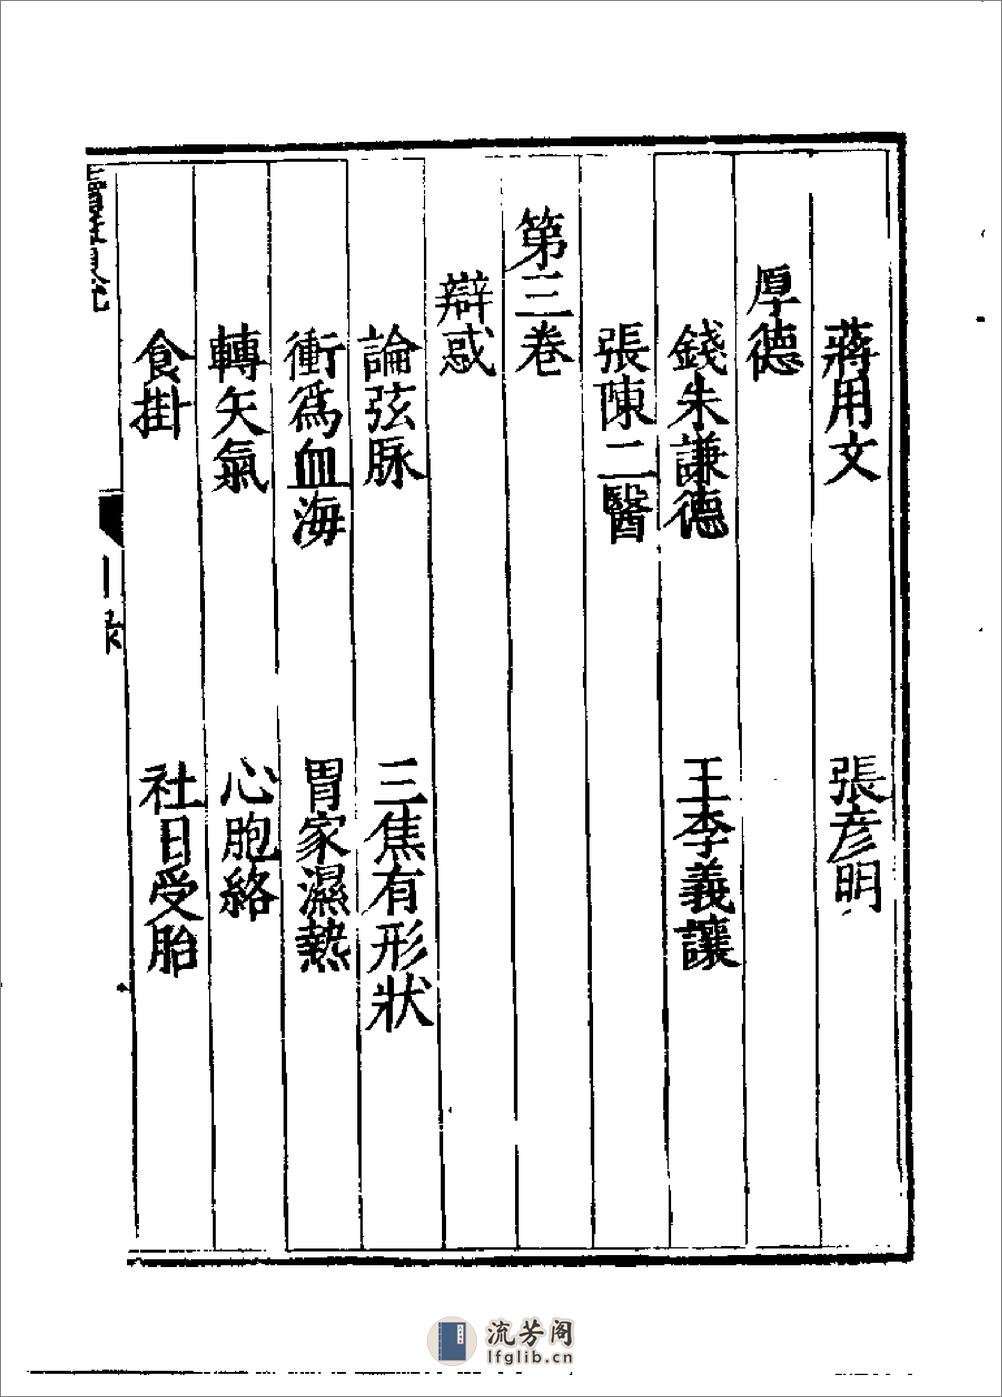 蔣用文　張彥明
厚德
錢朱謙德　王李義讓
張陳二醫
第三卷
辯惑
論弦脉　三焦有形狀
衝爲血海　胃家濕熱
轉矢氣　心胞絡
食掛　社日受胎
流芳阁
lfglib.cn